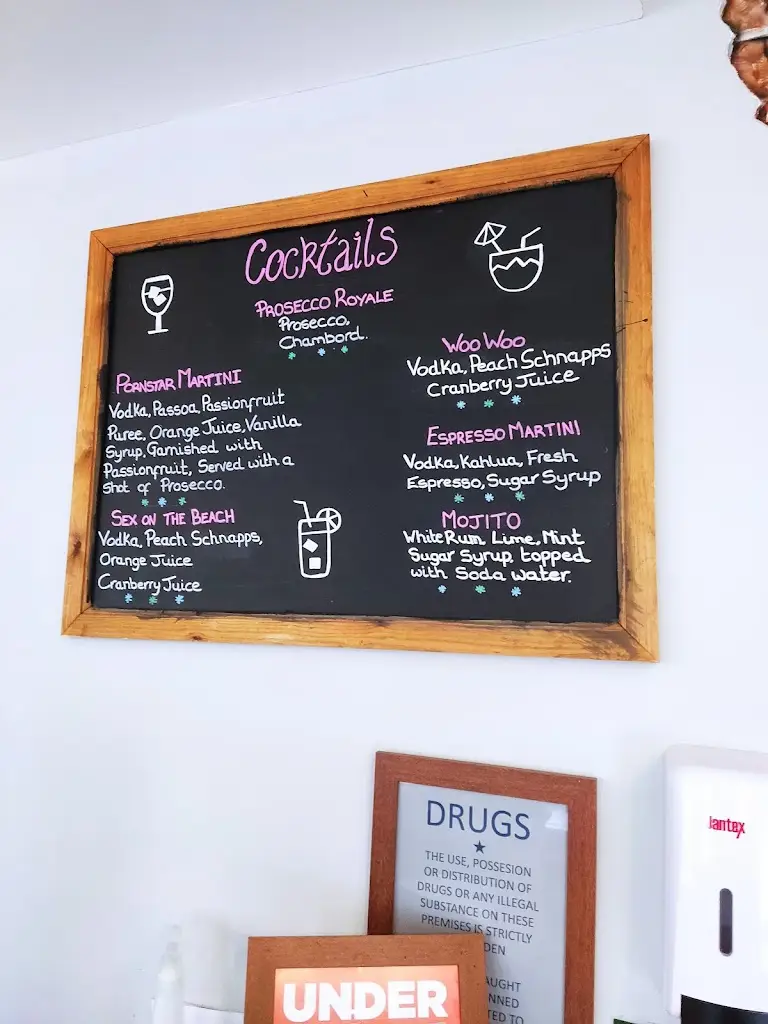 Cocktails
PROSECCO ROYALE
Prosecco,
Chambord.
PORNSTAR MARTINI
Vodka, Passoa, Passionfruit
Puree, Orange Juice, Vanilla
Syrup, Garnished with
Passionfruit, Served with a
Shot of Prosecco.
SEX ON THE BEACH
Vodka, Peach Schnapps,
Orange Juice
Cranberry Juice
WOO WOO
Vodka, Peach Schnapps
Cranberry Juice
ESPRESSO MARTINI
Vodka, Kahlua, Fresh
Espresso, Sugar Syrup
MOJITO
White Rum, Lime, Mint
Sugar Syrup topped
with Soda Water.
DRUGS
THE USE, POSSESION
OR DISTRIBUTION OF
DRUGS OR ANY ILLEGAL
SUBSTANCE ON THESE
PREMISES IS STRICTLY
UNDER